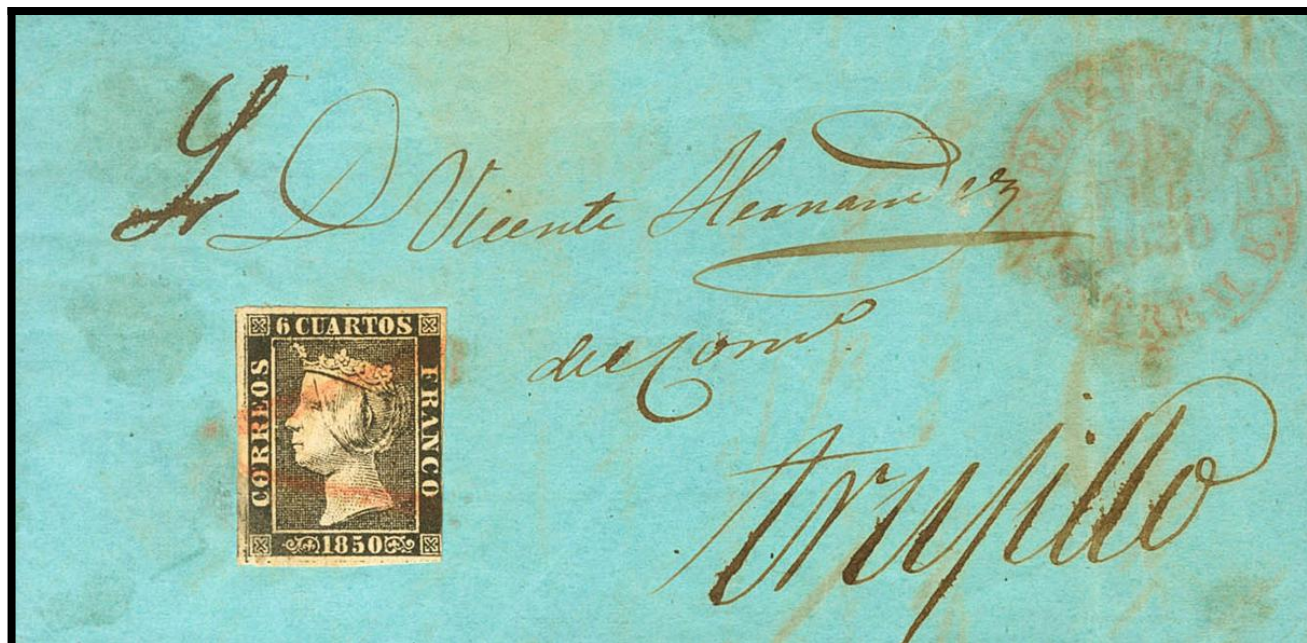 S. D. Vicente Hernandez
del Com.º
trujillo
6 CUARTOS
CORREOS
FRANCO
1850
PLASENCIA
1850